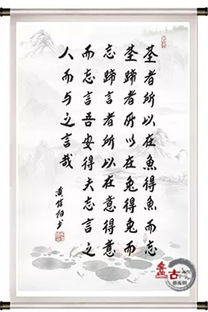 荃者所以在魚得魚而忘
荃蹄者所以在兔得兔而
忘蹄言者所以在意得意
而忘言吾安得夫忘言之
人而与之言哉